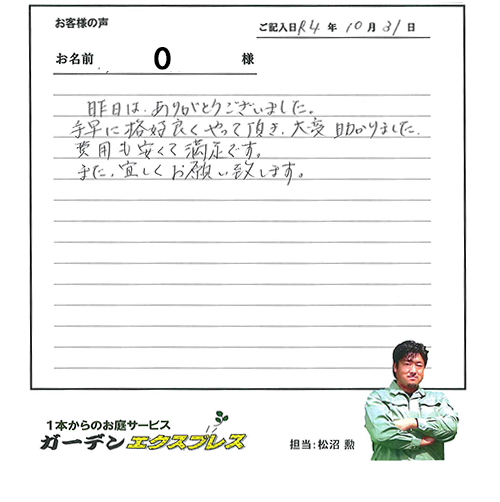 お客様の声
ご記入日 R4 年 10 月 31 日
お名前 O 様
昨日は、ありがとうございました。
手早に格好良くやって頂き、大変助かりました。
費用も安くて満足です。
また、宜しくお願い致します。
1本からのお庭サービス
ガーデンエクスプレス
担当:松沼 勲